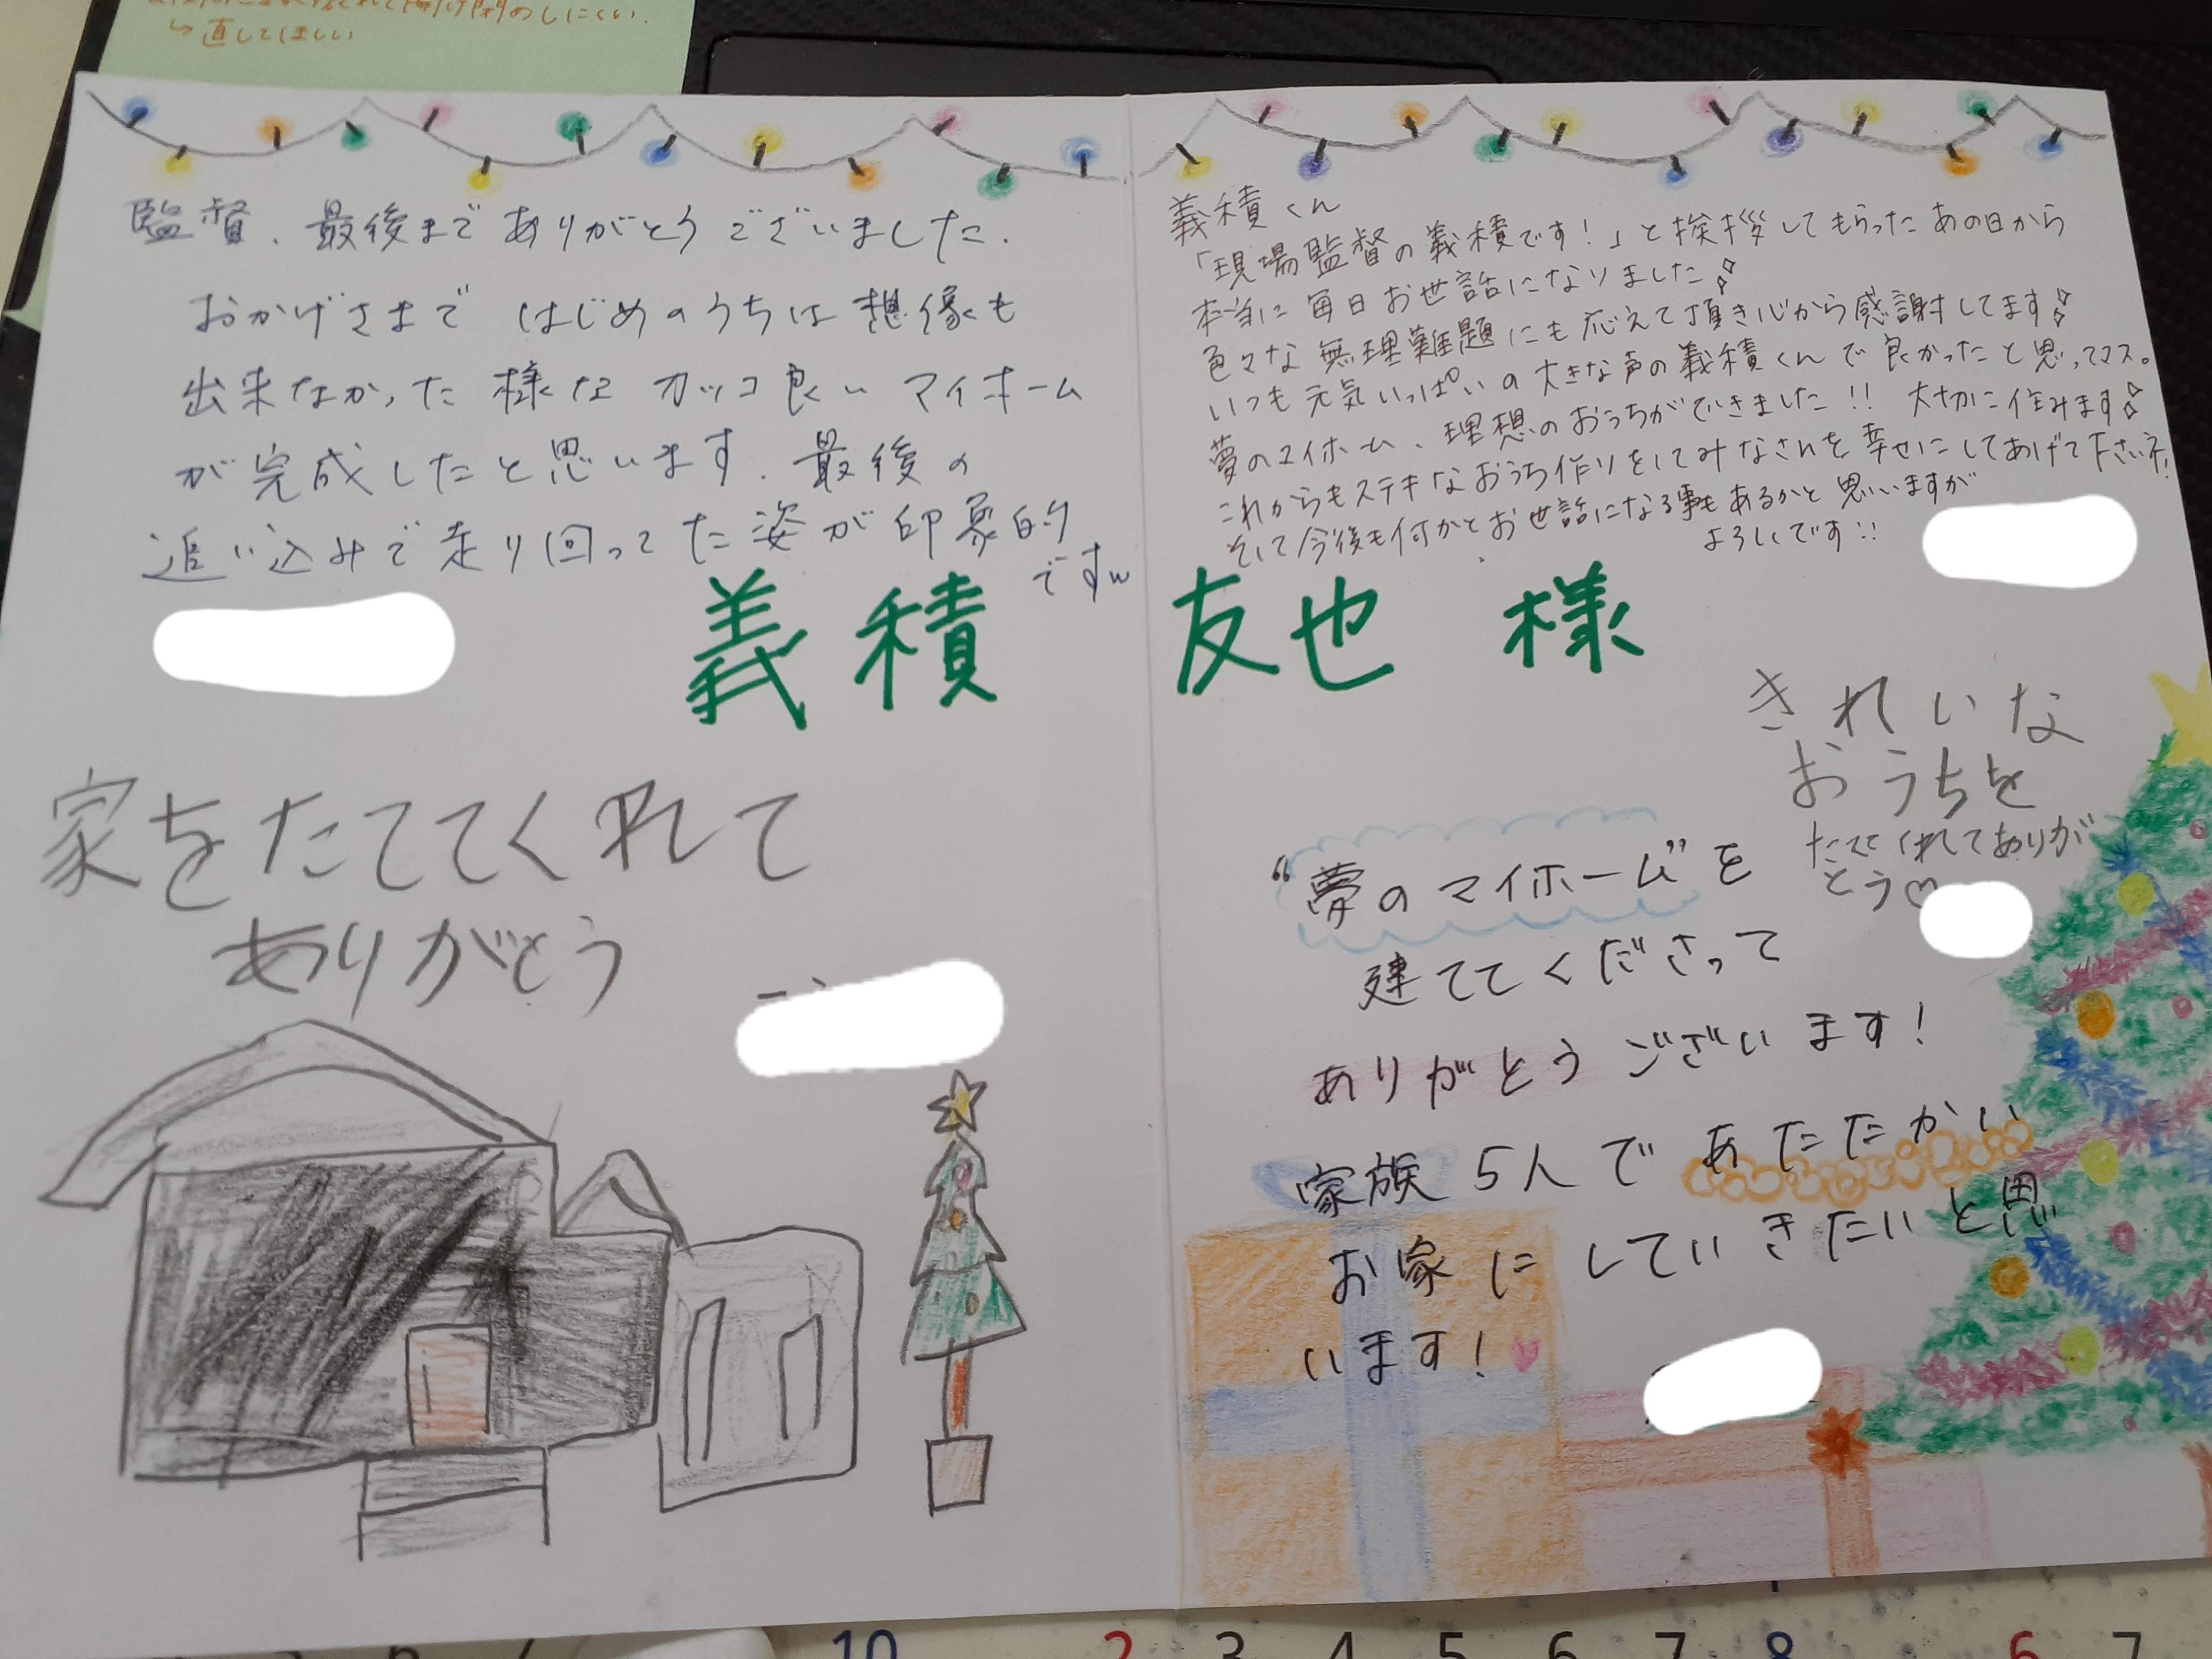 め閉めしにくい.
↳直してほしい
監督、最後まで ありがとうございました.
おかげさまで はじめのうちは想像も
出来なかった様な カッコ良い マイホーム
が完成したと思います. 最後の
追い込みで走り回ってた姿が印象的
ですw
義積くん
「現場監督の義積です!」と挨拶してもらった あの日から
本当に毎日お世話になりました
色々な無理難題にも応えて頂き心から感謝してます
いつも元気いっぱいの大きな声の義積くんで良かったと思ってマス。
夢のマイホーム、理想のおうちができました!! 大切に住みます
これからもステキなおうち作りをしてみなさんを幸せにしてあげて下さいネ!
そして今後も何かとお世話になる事もあるかと思いますが
よろしくです!!
義積 友也 様
家をたててくれて
ありがとう
きれいな
おうちを
たててくれてありが
とう♡
“夢のマイホーム”を
建ててくださって
ありがとうございます!
家族5人であたたかい
お家にしていきたいと思
います!
10 2 3 4 5 6 7 8 6 7